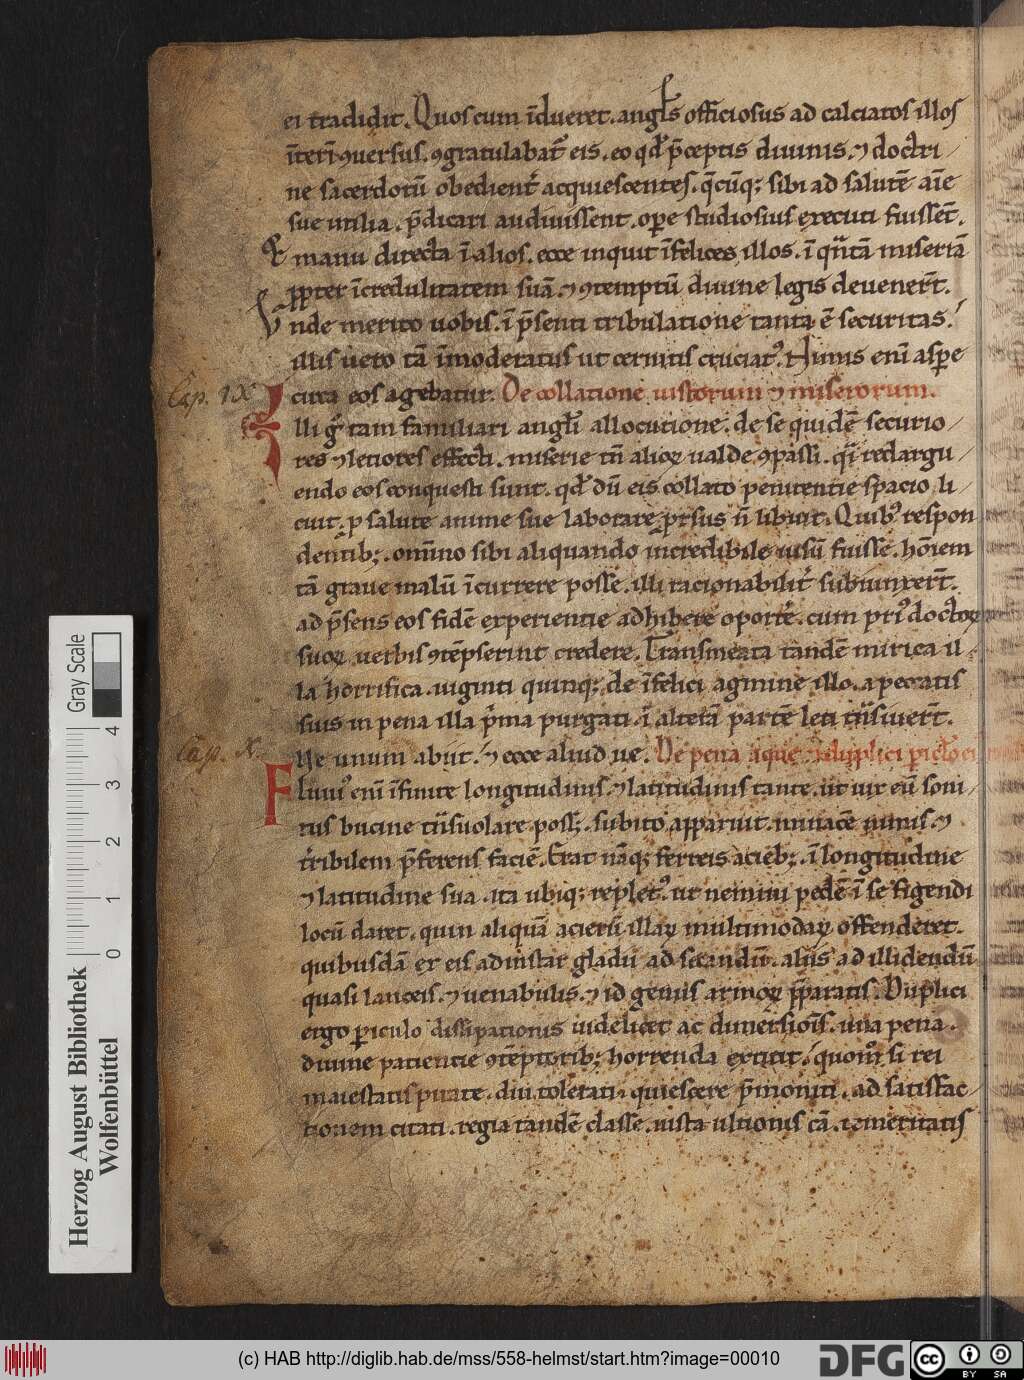 ei tradidit. Quos cum īdueret. angl̄s officiosus ad calciatos illos
īterī ꝯuersus. ꝯgratulabat᷑ eis. eo qď p̄ceptis diuinis. ⁊ doctri
ne sacerdotū obedient᷑ acquiescentes. q̄cūq; sibi ad salutē aīe
sue utilia. p̄dicari audiuissent. oꝑe studiosius executi fuissēt.
Et manu directa ī alios. ecce inquit īfelices illos. ī qn̄tā miseriā
ꝓpter īcredulitatem suā. ⁊ ꝯtemptū diuine legis deuenerт̄.
Vnde merito uobis. ī p̄senti tribulatione tanta ē securitas.
illis uero tā īmoderatus ut cernitis cruciat᷒. Nimis enī aspe
cura eos agebatur. De collatione iustorum ⁊ miserorum.
Cap. IX
Illi g̊ tam familiari angl̄i allocutione. de se quidē securio
res ⁊ letiores effecti. miserie tn̄ alioꝝ ualde ꝯpassi. q̄i redargu
endo eos conquesti sunt. qď dū eis collato penitentie spacio li
cuit. ꝑ salute anime sue laborare prorsus n̄ libuit. Quib᷒ respon
dentib;. omīno sibi aliquando incredibile uisū fuisse. hōiem
tā graue malū īcurrere posse. illi racionabilit᷑ subiunxerт̄.
ad p̄sens eos fidē experientie adhibere oporte᷑. cum pri᷒ doctoꝝ
suoꝝ uerbis ꝯtēpserint credere. Transmeata tandē mirica il
la horrifica. uiginti quinq; de īfelici agmine illo. a peccatis
suis in pena illa p̄ma purgati. ī alterā partē leti tn̄siuerт̄.
Cap. X.
Ve unum abiit. ⁊ ecce aliud ue. De pena aque ⁊ duplici ꝑiclo ei
Fluui᷒ enī īfinite longitudinis ⁊ latitudinis tante. ut uix eū soni
tus bucine tn̄suolare poss;. subito apparuit. minacē nimis. ⁊
t᷑ribilem p̄ferens faciē. Erat nāq; ferreis acieb;. ī longitudine
⁊ latitudine sua. ita ubiq; replet᷒. ut nemini pedē ī se figendi
locū daret. quin aliquā acierū illaꝝ multimodaꝝ offenderet.
quibusdā ex eis ad instar gladii ad secandū. aliis ad illidendū
quasi lanceis. ⁊ uenabulis. ⁊ id genus armoꝝ p̄paratis. Duplici
ergo ꝑiculo dissipationis uidelicet ac dimersiōis. una pena.
diuine patientie ꝯtēptorib; horrenda extitit. quom̊ si rei
maiestatis priuate. diu tolerati. quiescere p̄moniti. ad satisfac
tionem citati. regia tandē classe. iusta ultionis cā. temeritatis
Gray Scale
0 1 2 3 4
Herzog August Bibliothek
Wolfenbüttel
(c) HAB http://diglib.hab.de/mss/558-helmst/start.htm?image=00010
DFG
cc BY SA